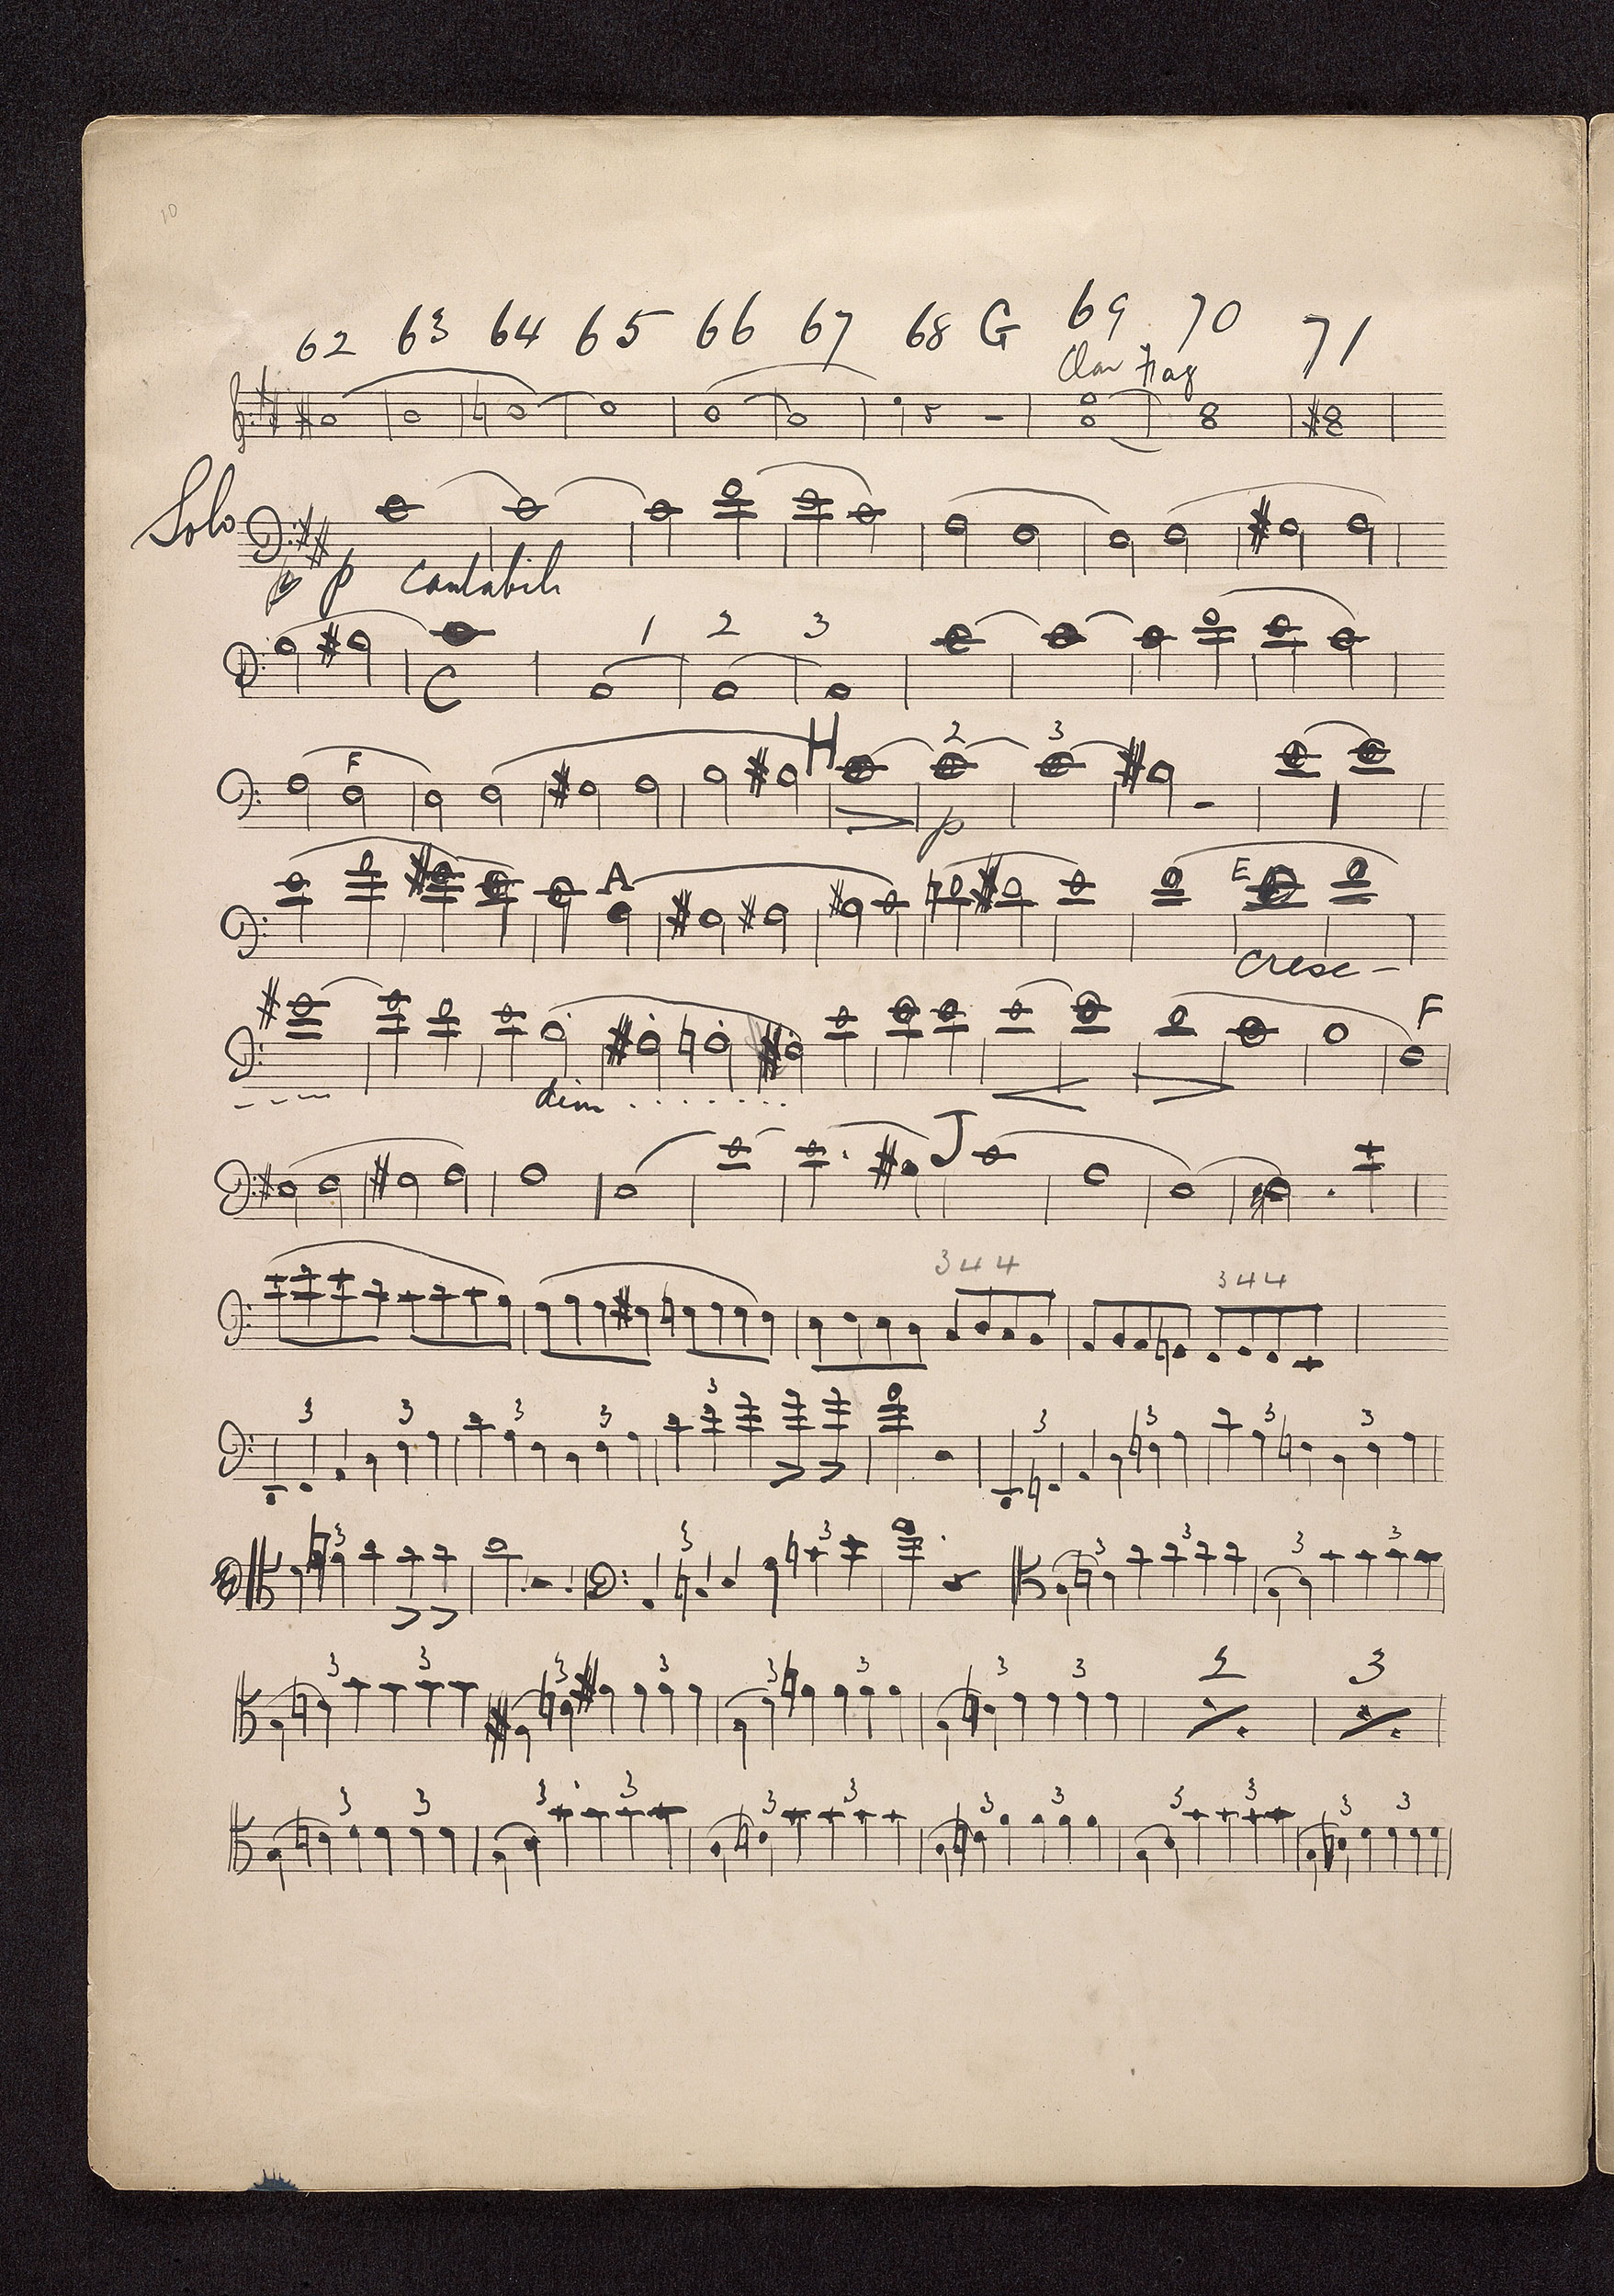 10
62 63 64 65 66 67 68 G 69 70 71
Clar Fag
Solo
p p Cantabile
1 2 3
C
F H 2 3
p
A E
Cresc -
F
dim . . . . . . .
J
3 4 4 3 4 4
3 3 3 3 3 3 3 3 3
3 3 3 3 3 3 3
3 3 3 3 3 3 3 3 2 3
3 3 3 3 3 3 3 3 3 3 3 3